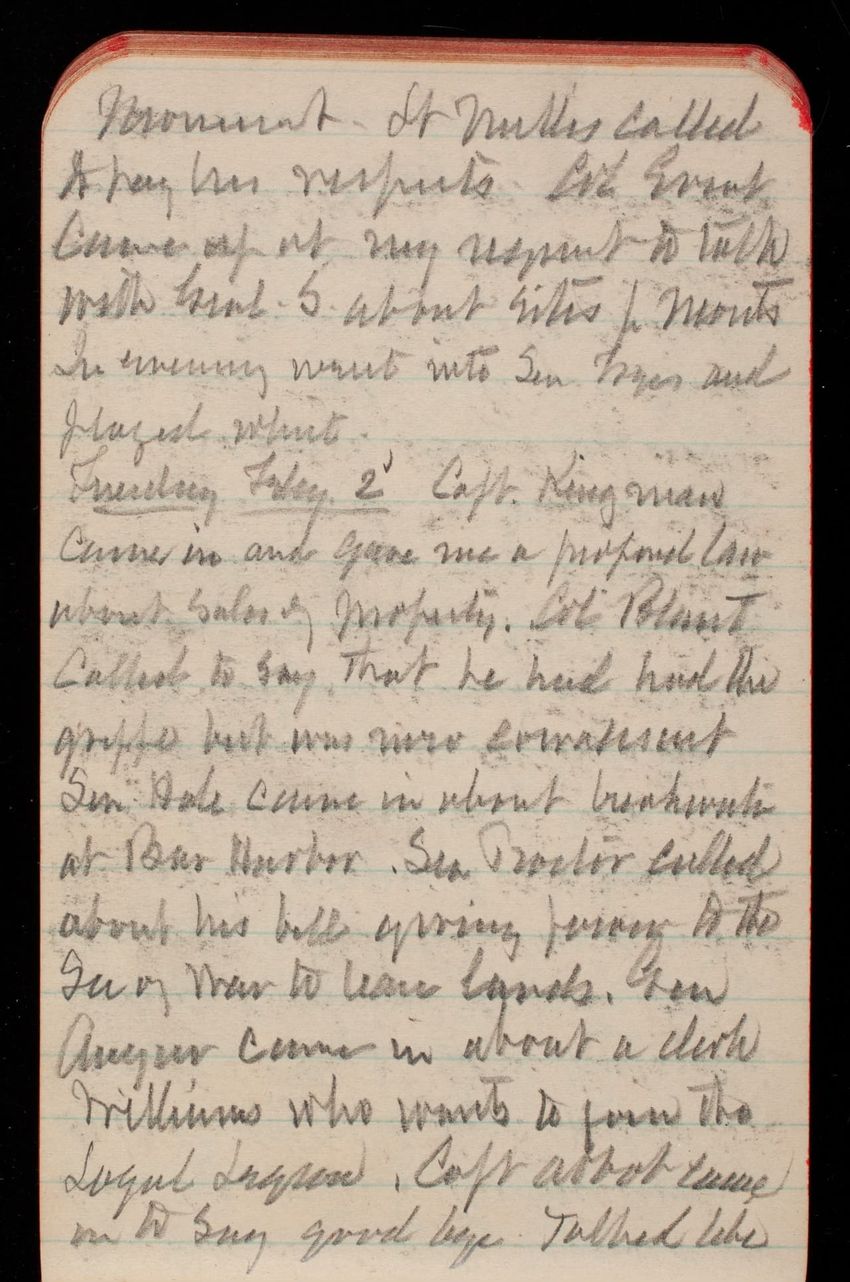 Monument. Lt Mullis called
to pay his respects Col Ernst
Came up at my request to talk
with Genl. S about sites for Monts
In evening went into Sen Fryes and
played whist.
Tuesday Feby. 2' Capt. Kingman
came in and gave me a proposed law
about sales of property. Col Blunt
Called to say that he had had the
grippe but was now convalescent
Sen Hale came in about breakwater
at Bar Harbor. Sen Proctor called
about his bill giving power to the
Sec of War to lease lands. Gen
Augur came in about a clerk
Williams who wants to join the
Loyal Legion. Capt Abbot came
in to say good bye. Talked like